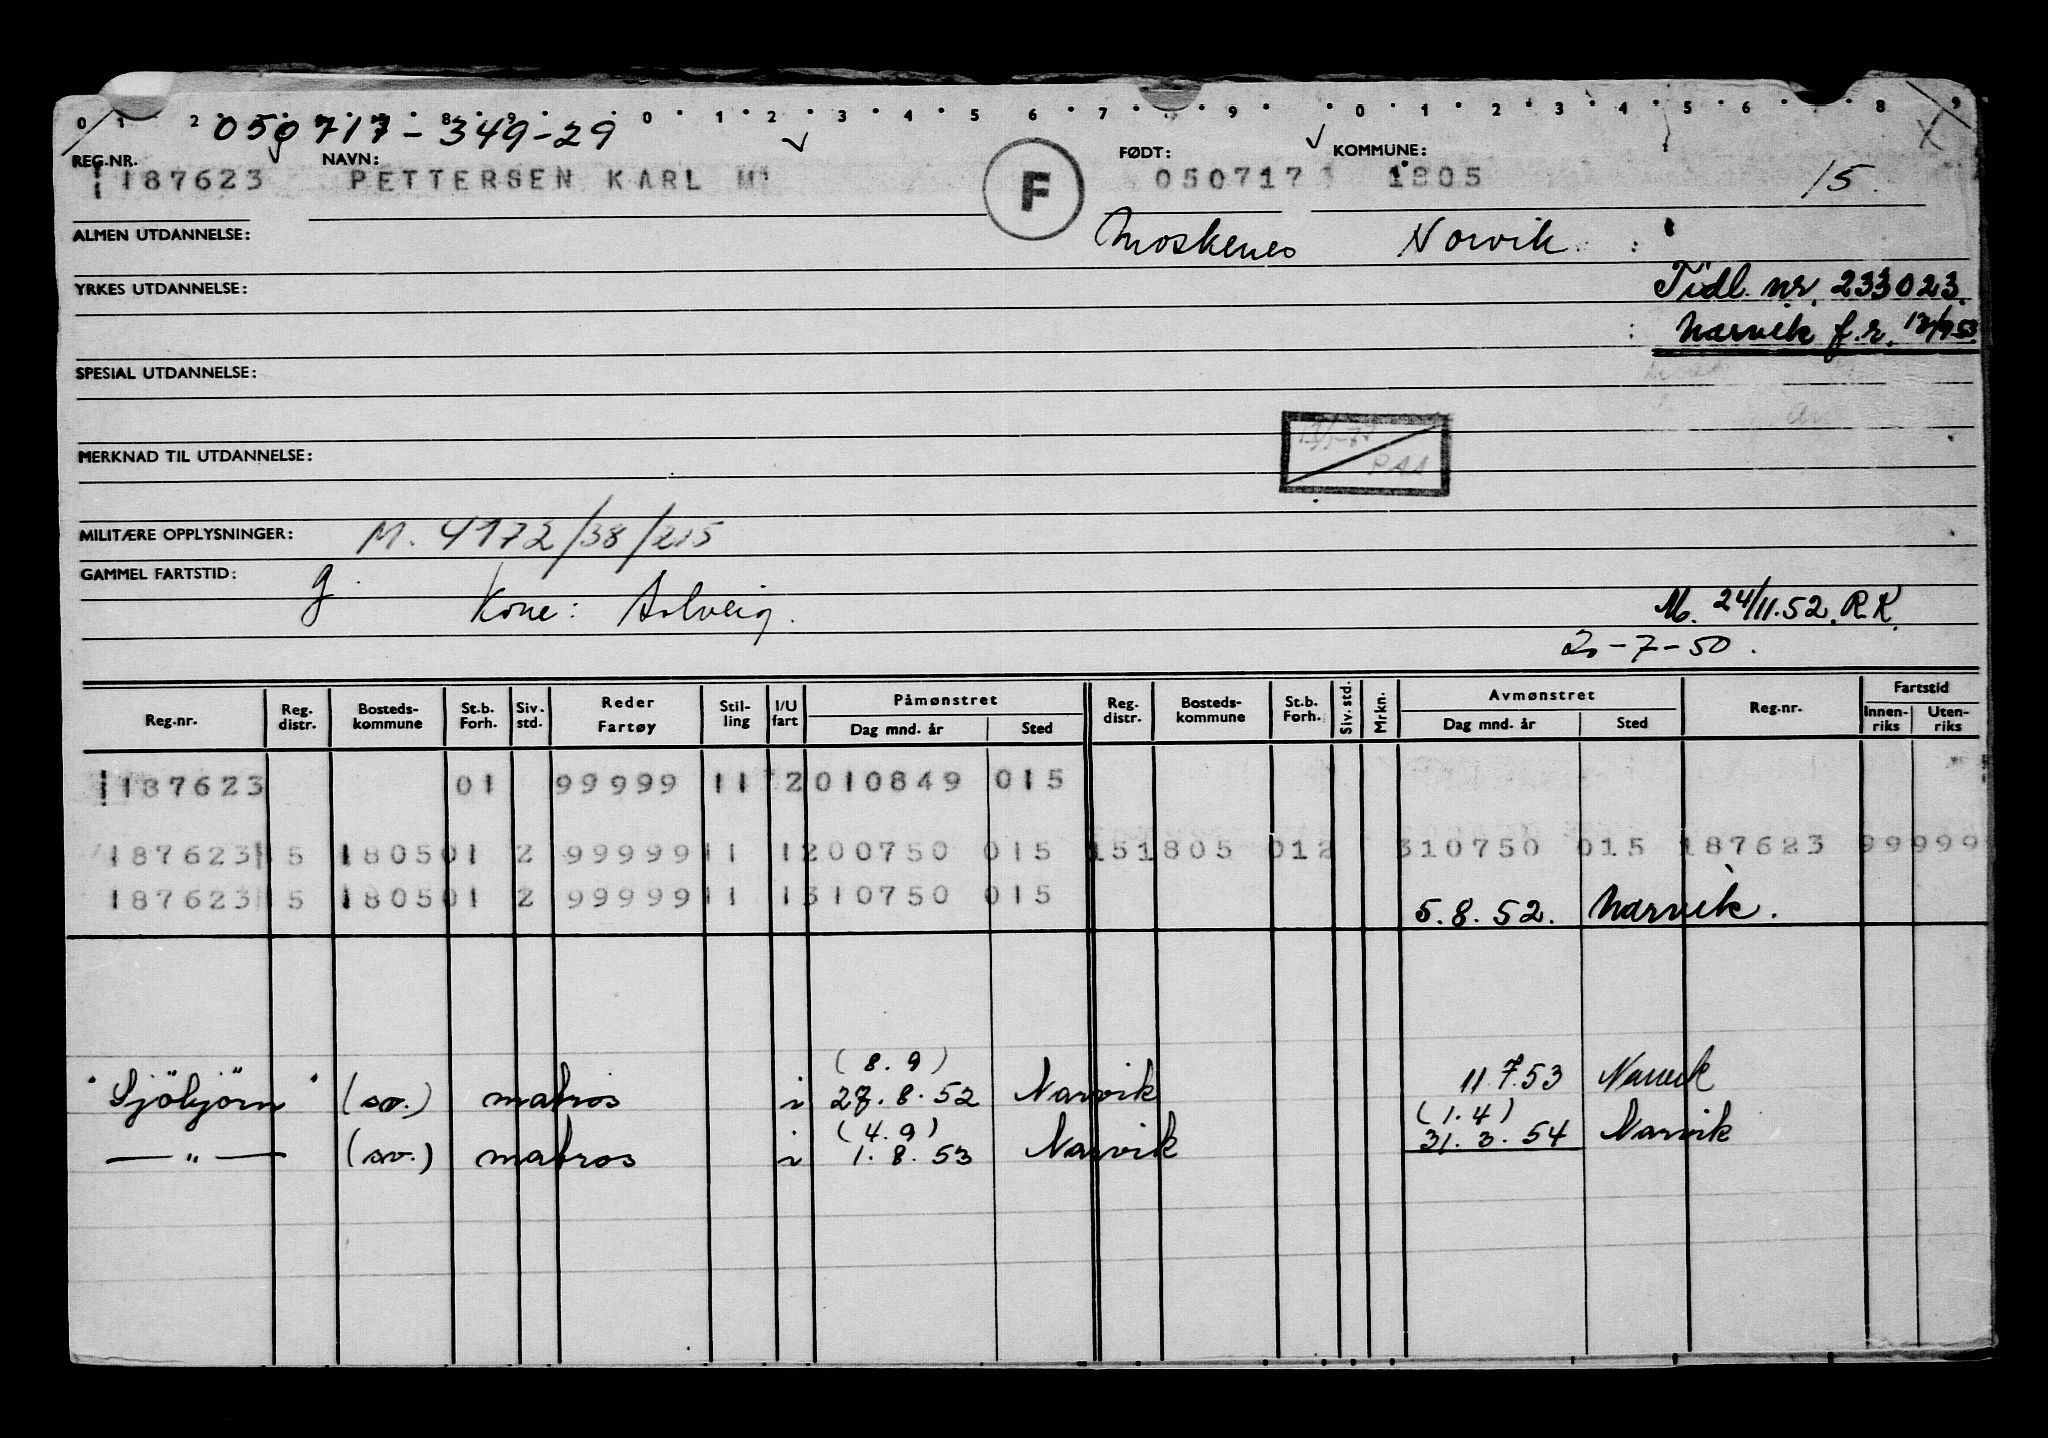 0 1 2 8 9 0 1 2 3 4 5 6 7 9 0 1 2 3 4 5 6 8 9
050717-349-29 X
REG.NR. NAVN: FØDT: KOMMUNE:
187623 PETTERSEN KARL M F 050717 1805 15
ALMEN UTDANNELSE: Moskenes Narvik
YRKES UTDANNELSE: Tidl. nr. 233023.
Narvik f.r. 12/9 53
SPESIAL UTDANNELSE:
MERKNAD TIL UTDANNELSE:
MILITÆRE OPPLYSNINGER: M. 4172/38/215
GAMMEL FARTSTID: g.
Kone: Solveig. M. 24/11.52. R.K.
2-7-50.
Reg.nr. Reg. distr. Bosteds-kommune St.b. Forh. Siv. std. Reder Fartøy Stil-ling I/U fart Påmønstret Dag mnd. år Sted Reg. distr. Bosteds-kommune St.b. Forh. Siv. std. Mrkn. Avmønstret Dag mnd. år Sted Reg.nr. Fartstid Innen-riks Uten-riks
187623 01 99999 11 2 010849 015
187623 15 1805 01 2 99999 11 1 200750 015 15 1805 01 2 310750 015 187623 99999
187623 15 1805 01 2 99999 11 1 310750 015 5.8.52. Narvik.
(8.9)
"Sjöbjörn" (sv.) matros i 28.8.52 Narvik 11.7.53 Narvik
(4.9) (1.4)
— " — (sv.) matros i 1.8.53 Narvik 31.3.54 Narvik